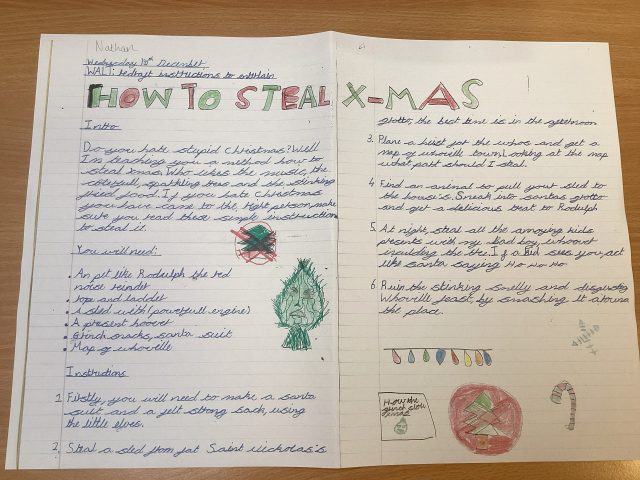 Nathan
Wednesday 15th December
WALT: redraft instructions to entertain
HOW TO STEAL X-MAS
Intro
Do you hate stupid Christmas? Well
I'm teaching you a method how to
steal xmas. Who likes the music, the
colerfull, sparkling trees and the stinking
food. If you hate Christmas
you have came to the right person make
sure you read these simple instruction
to steal it.
You will need:
• An pet like Rodulph the red
nose reinder
• rope and ladder
• A sled with (powerfull engine)
• A present hoover
• Grinch snacks, santa suit
• Map of whoville
Instructions
1. Firstly, you will need to make a santa
suit and a felt strong sack, using
the little elves.
2. Steal a sled from fat Saint Nicholas's
grotto, the best time is in the
3. Plane a heist for the whos and get a
map of whovill town. Looking at the map
what part should I steal.
4. Find an animal to pull your sled to
the house's. Sneak into santas grotto
and get a delicious treat to Rodulph
5. At night, steal all the annoying kids
presents with my bad boy, whoover
inculding the tree. If a kid sees you, act
like santa saying Ho Ho Ho
6. Ruin the stinking smelly and disgusting
Whoville feast, by smashing it around
the place.
How the
grinch stow
xmas